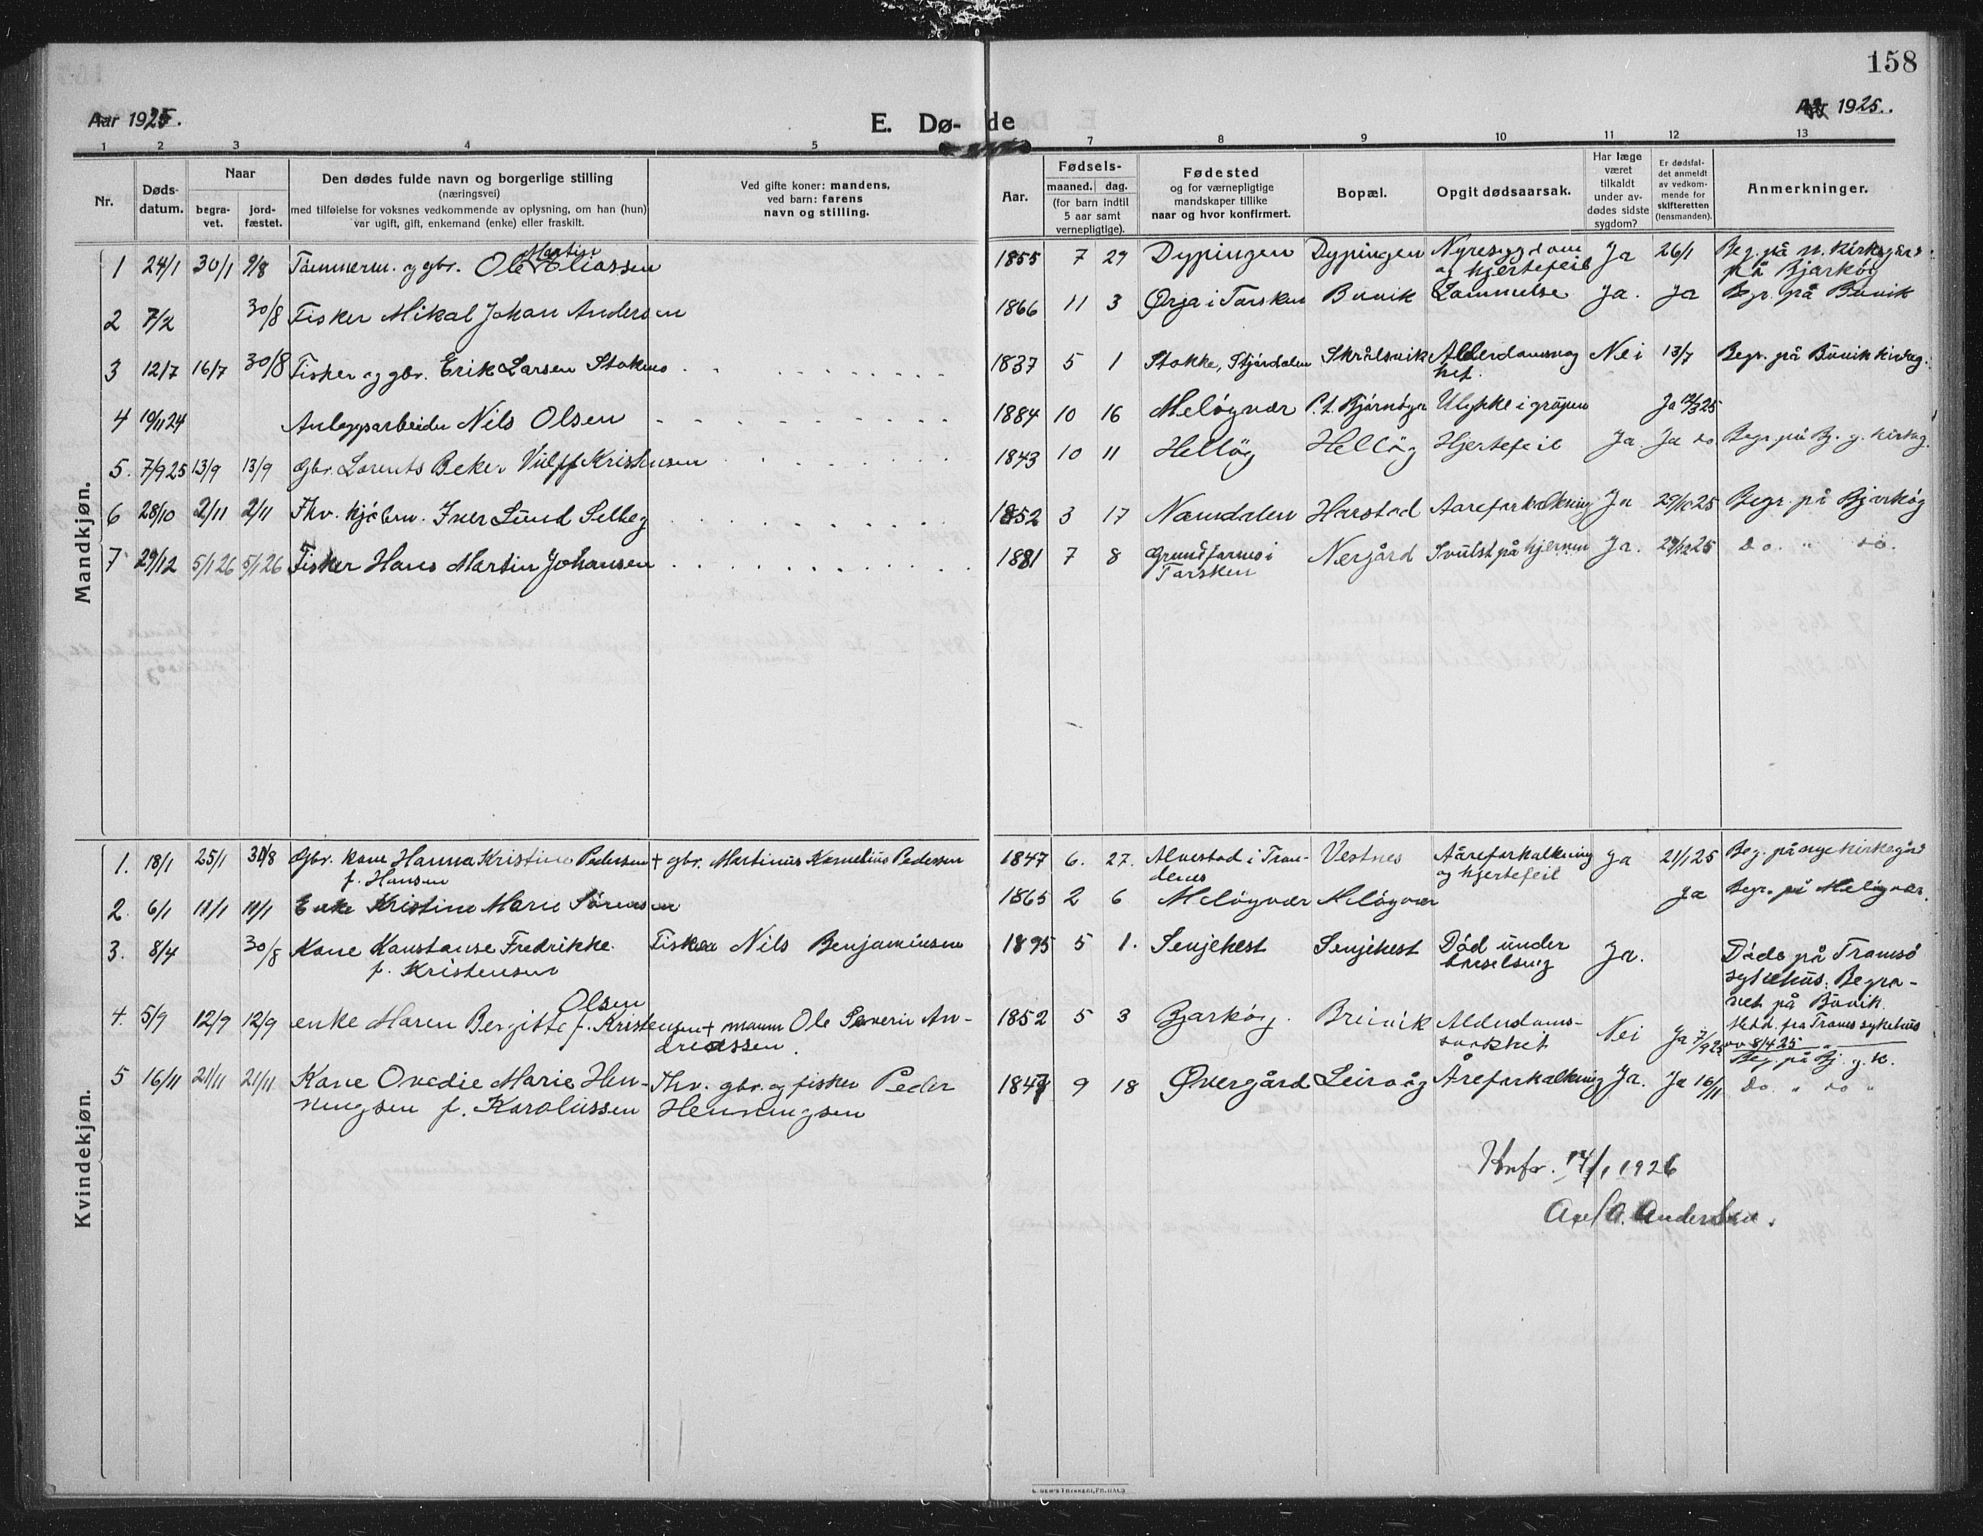 158
Aar 1925.
E. Dø- de
Aar 1925.
1 2 3 4 5 7 8 9 10 11 12 13
Nr.
Døds-
datum.
Naar
begra-
vet.
jord-
fæstet.
Den dødes fulde navn og borgerlige stilling
(næringsvei)
med tilføielse for voksnes vedkommende av oplysning, om han (hun)
var ugift, gift, enkemand (enke) eller fraskilt.
Ved gifte koner: mandens,
ved barn: farens
navn og stilling.
Aar.
Fødsels-
maaned. dag.
(for barn indtil
5 aar samt
vernepligtige).
Fødested
og for værnepligtige
mandskaper tillike
naar og hvor konfirmert.
Bopæl.
Opgit dødsaarsak.
Har læge
været
tilkaldt
under av-
dødes sidste
sygdom?
Er dødsfal-
det anmeldt
av vedkom-
mende for
skifteretten
(lensmanden).
Anmerkninger.
Mandkjøn.
1 24/1 30/1 9/8 Tømmerm. og gbr. Ole Martin Eliassen 1855 7 29 Dypingen Dypingen Nyresygdom og hjertefeil Ja 26/1 Beg. på n. kirkegård på Bjarkøy
2 7/2 30/8 Fisker Mikal Johan Andersen 1866 11 3 Ørja i Torsken Buvik Lammelse Ja. Ja Begr. på Buvik
3 12/7 16/7 30/8 Fisker og gbr. Erik Larsen Stokmo 1837 5 1 Stokke, Stjørdalen Skrålsvik Alderdomssvaghet. Nei 13/7 Begr. på Buvik kirkeg.
4 19/11 24 Anleggsarbeider Nils Olsen 1884 10 16 Meløyvær P.t. Bjørnøya Ulykke i gruven Ja 12/3 25
5. 7/9 25 13/9 13/9 Gbr. Lorents Beker Vulff Kristensen 1843 10 11 Helløy Helløy Hjertefeil Ja. Ja do Begr. på Bj. g. kirkeg.
6 28/10 2/11 2/11 Fhv. kjøbm. Iver Lund Selbey 1852 3 17 Namdalen Harstad Aareforkalkning Ja 29/10 25 Begr. på Bjarkøy
7 29/12 5/1 26 5/1 26 Fisker Hans Martin Johansen 1881 7 8 Grundfarnes i Torsken Nergård Svulst på hjernen Ja. 29/12 25 do. " do.
Kvindekjøn.
1. 18/1 25/1 30/8 Gbr. kone Hanna Kristine Pedersen f. Hansen + gbr. Martinus Kornelius Pedersen 1847 6. 27. Alvestad i Trondenes Vestnes Aareforkalkning og hjertefeil Ja 21/1 25 Beg. på nye kirkegård
2. 6/1 11/1 11/1 Enke Kristine Marie Sørensen 1865 2 6 Meløyvær Meløyvær Ja Begr. på Meløyvær.
3. 8/4 30/8 Kone Konstanse Fredrikke f. Kristensen Fisker Nils Benjaminsen 1895 5 1. Senjehest Senjehest Død under barselseng Ja. Døde på Tromsø sykehus. Begravet på Buvik.
Medd. fra Troms sykehus av 8/4 25
4. 5/9 12/9 12/9 enke Maren Bergitte Olsen f. Kristensen + mann Ole Severin Andreassen. 1852 5 3 Bjarkøy. Breivik Alderdomssvakhet Nei Ja 7/9 25 Beg. på Bj. g. k.
5 16/11 21/11 21/11 Kone Ovedie Marie Henningsen f. Karolussen Fhv. gbr. og fisker Peder Henningsen 1847 9 18 Øvergård Leirvåg Åreforkalkning Ja. Ja 16/11 do. " do "
Konfr. 14/1 1926
Axel A. Andersen.